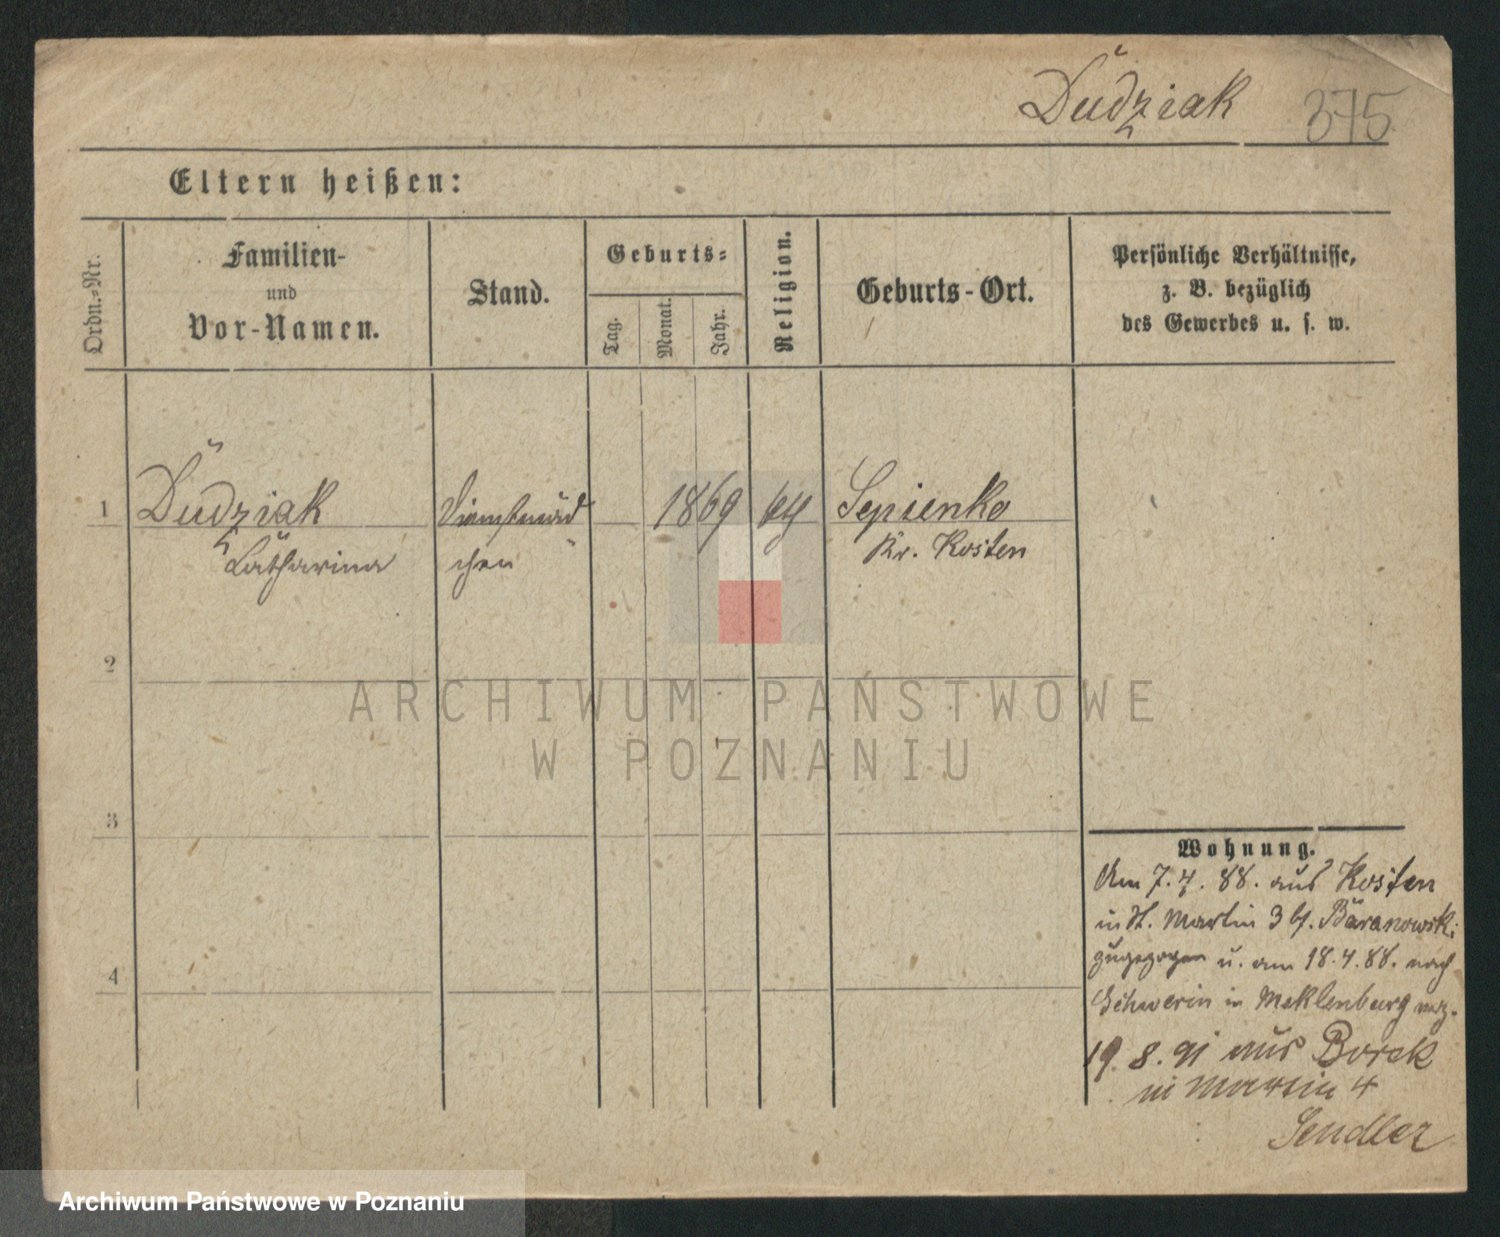 Dudziak 375
Eltern heißen:
Ordn.-Nr.
Familien-
und
Vor-Namen.
Stand.
Geburts-
Tag.
Monat.
Jahr.
Religion.
Geburts-Ort.
Persönliche Verhältnisse,
z. B. bezüglich
des Gewerbes u. s. w.
1 Dudziak Dienstmäd 1869 kth Sepienko
Catharina chen Kr. Kosten
2
3
4
Wohnung.
Am 7.4.88. aus Kosten
in St. Martin 3 b. Baranowski
zugezogen u. am 18.4.88. nach
Schwerin in Meklenburg verz.
19.8.91 aus Borek
in Martin 4
Sendler
ARCHIWUM PAŃSTWOWE
W POZNANIU
Archiwum Państwowe w Poznaniu